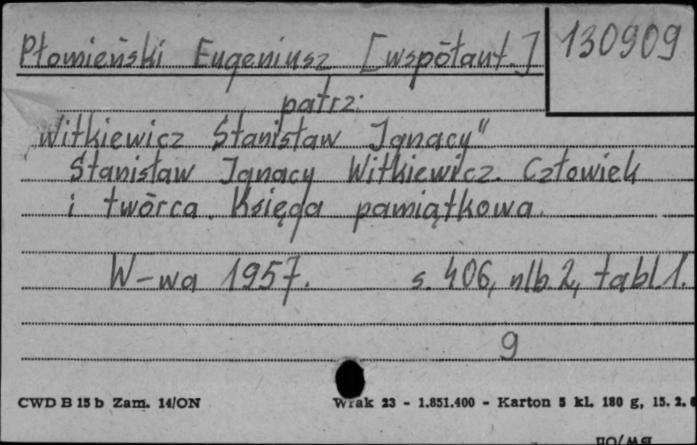 Płomieński Eugeniusz [współaut.] 130909
patrz:
„Witkiewicz Stanisław Ignacy”
Stanisław Ignacy Witkiewicz. Człowiek
i twórca. Księga pamiątkowa.
W-wa 1957. s. 406, nlb. 2, tabl 1.
9
CWD B 15 b Zam. 14/ON Wrak 23 - 1.851.400 - Karton 5 kl. 180 g, 15. 2.